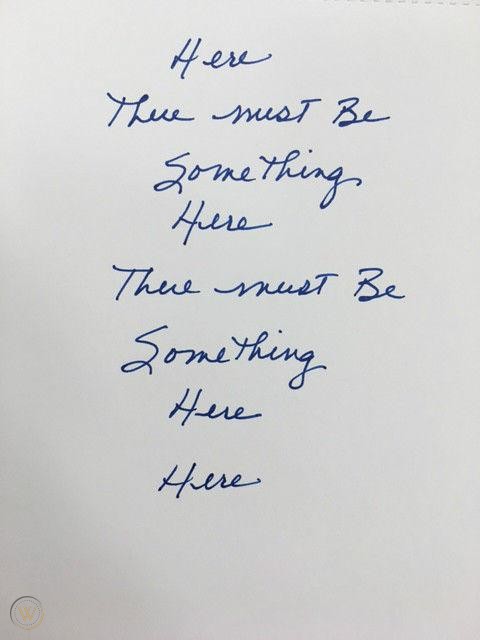 Here
There must Be
Something
Here
There must Be
Something
Here
Here
W